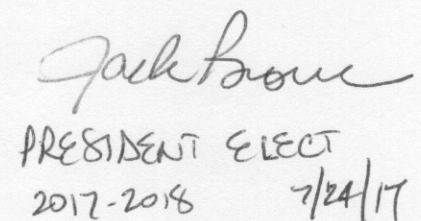 Jack Brown
PRESIDENT ELECT
2017-2018 7/24/17